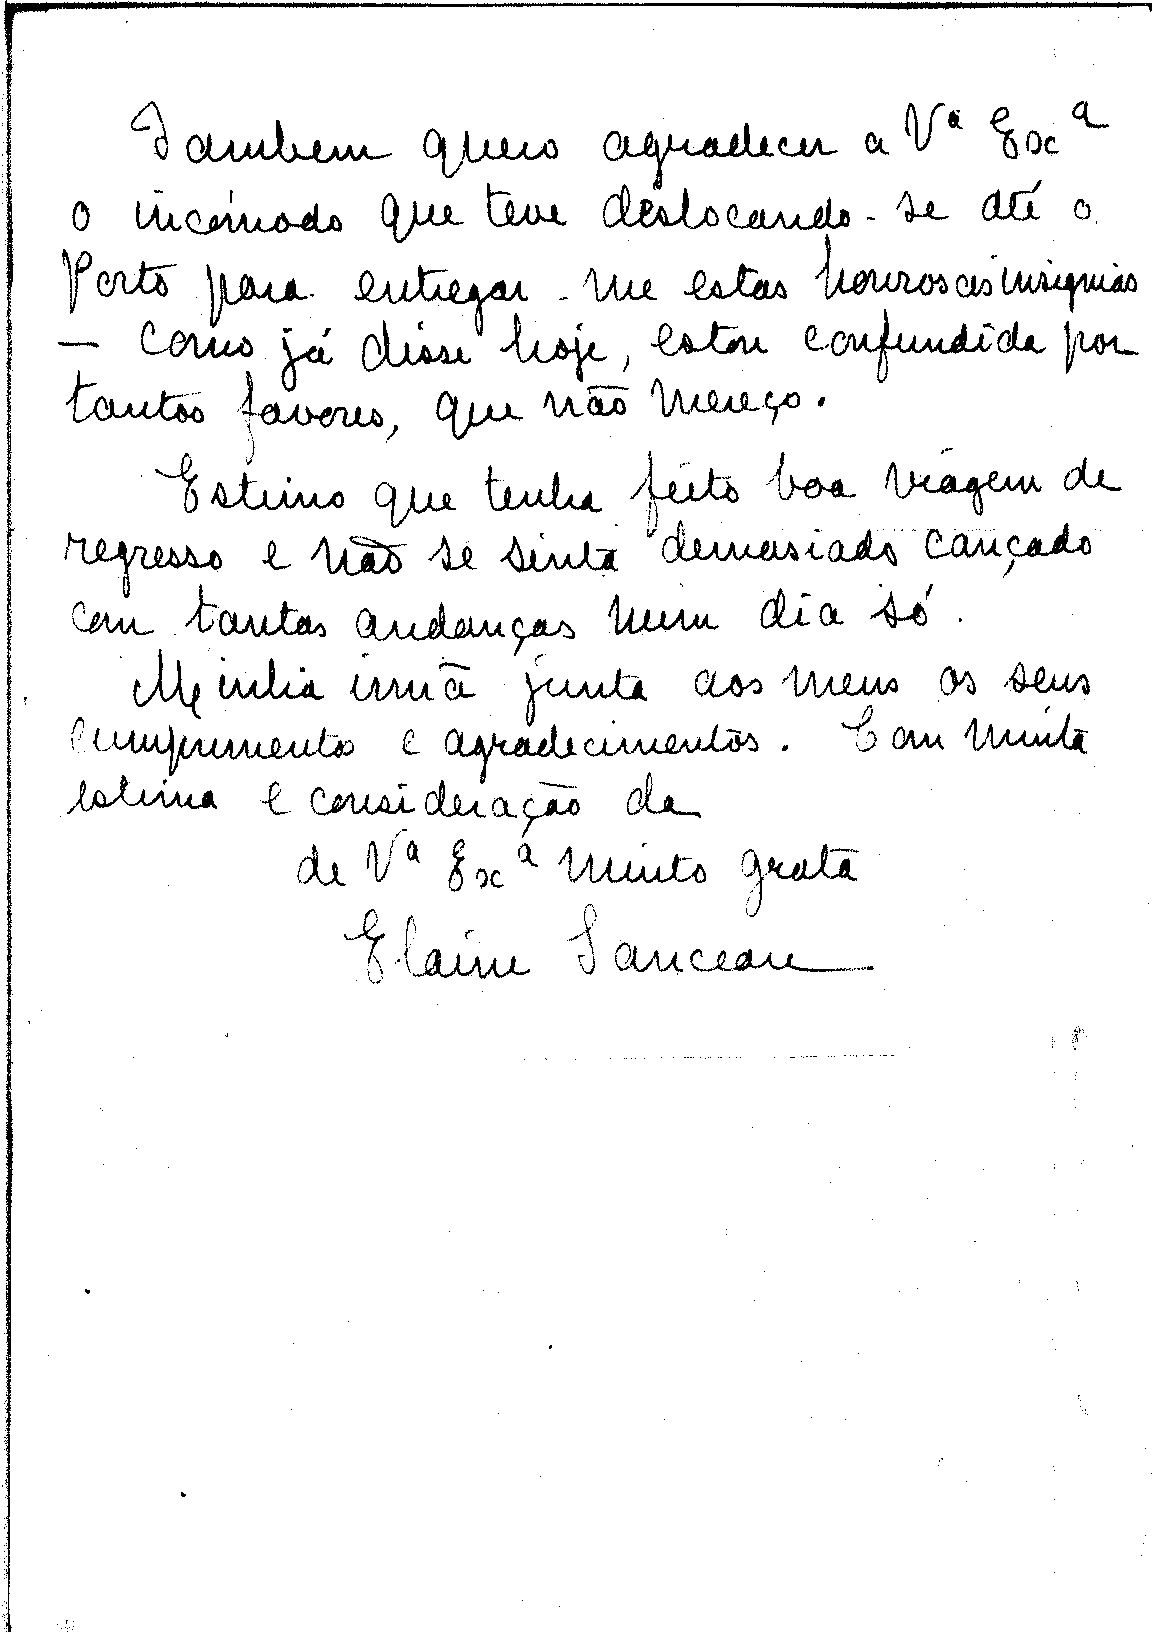 Tambem quero agradecer a Vª Exª
o incómodo que teve deslocando-se até o
Porto para entregar-me estas honrosas insignias
— como já disse hoje, estou confundida por
tantos favores, que não mereço.
Estimo que tenha feito boa viagem de
regresso e não se sinta demasiado cançado
com tantas andanças num dia só.
Minha irmã junta aos meus os seus
cumprimentos e agradecimentos. Com muita
estima e consideração da
de Vª Exª muito grata
Elaine Sanceau